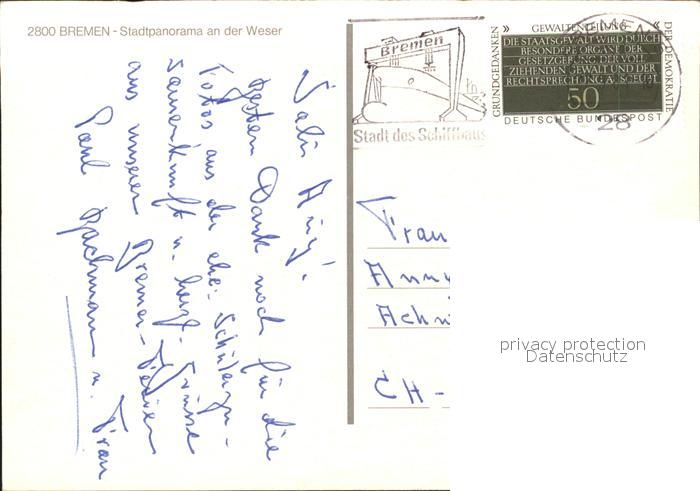 2800 BREMEN - Stadtpanorama an der Weser
Salü Anny!
Besten Dank noch für die
Fotos aus der ehe. Schülerzu-
sammenkunft u. herzl. Grüsse
aus unseren Bremer-Ferien
Paul Bachmann u. Frau
Bremen
Stadt des Schiffbaus
BREMEN
28
» GEWALTENTEILUNG «
GRUNDGEDANKEN
DER DEMOKRATIE
DIE STAATSGEWALT WIRD DURCH
BESONDERE ORGANE DER
GESETZGEBUNG DER VOLL
ZIEHENDEN GEWALT UND DER
RECHTSPRECHUNG AUSGEÜBT
50
DEUTSCHE BUNDESPOST
Frau
Anny
CH-
privacy protection
Datenschutz